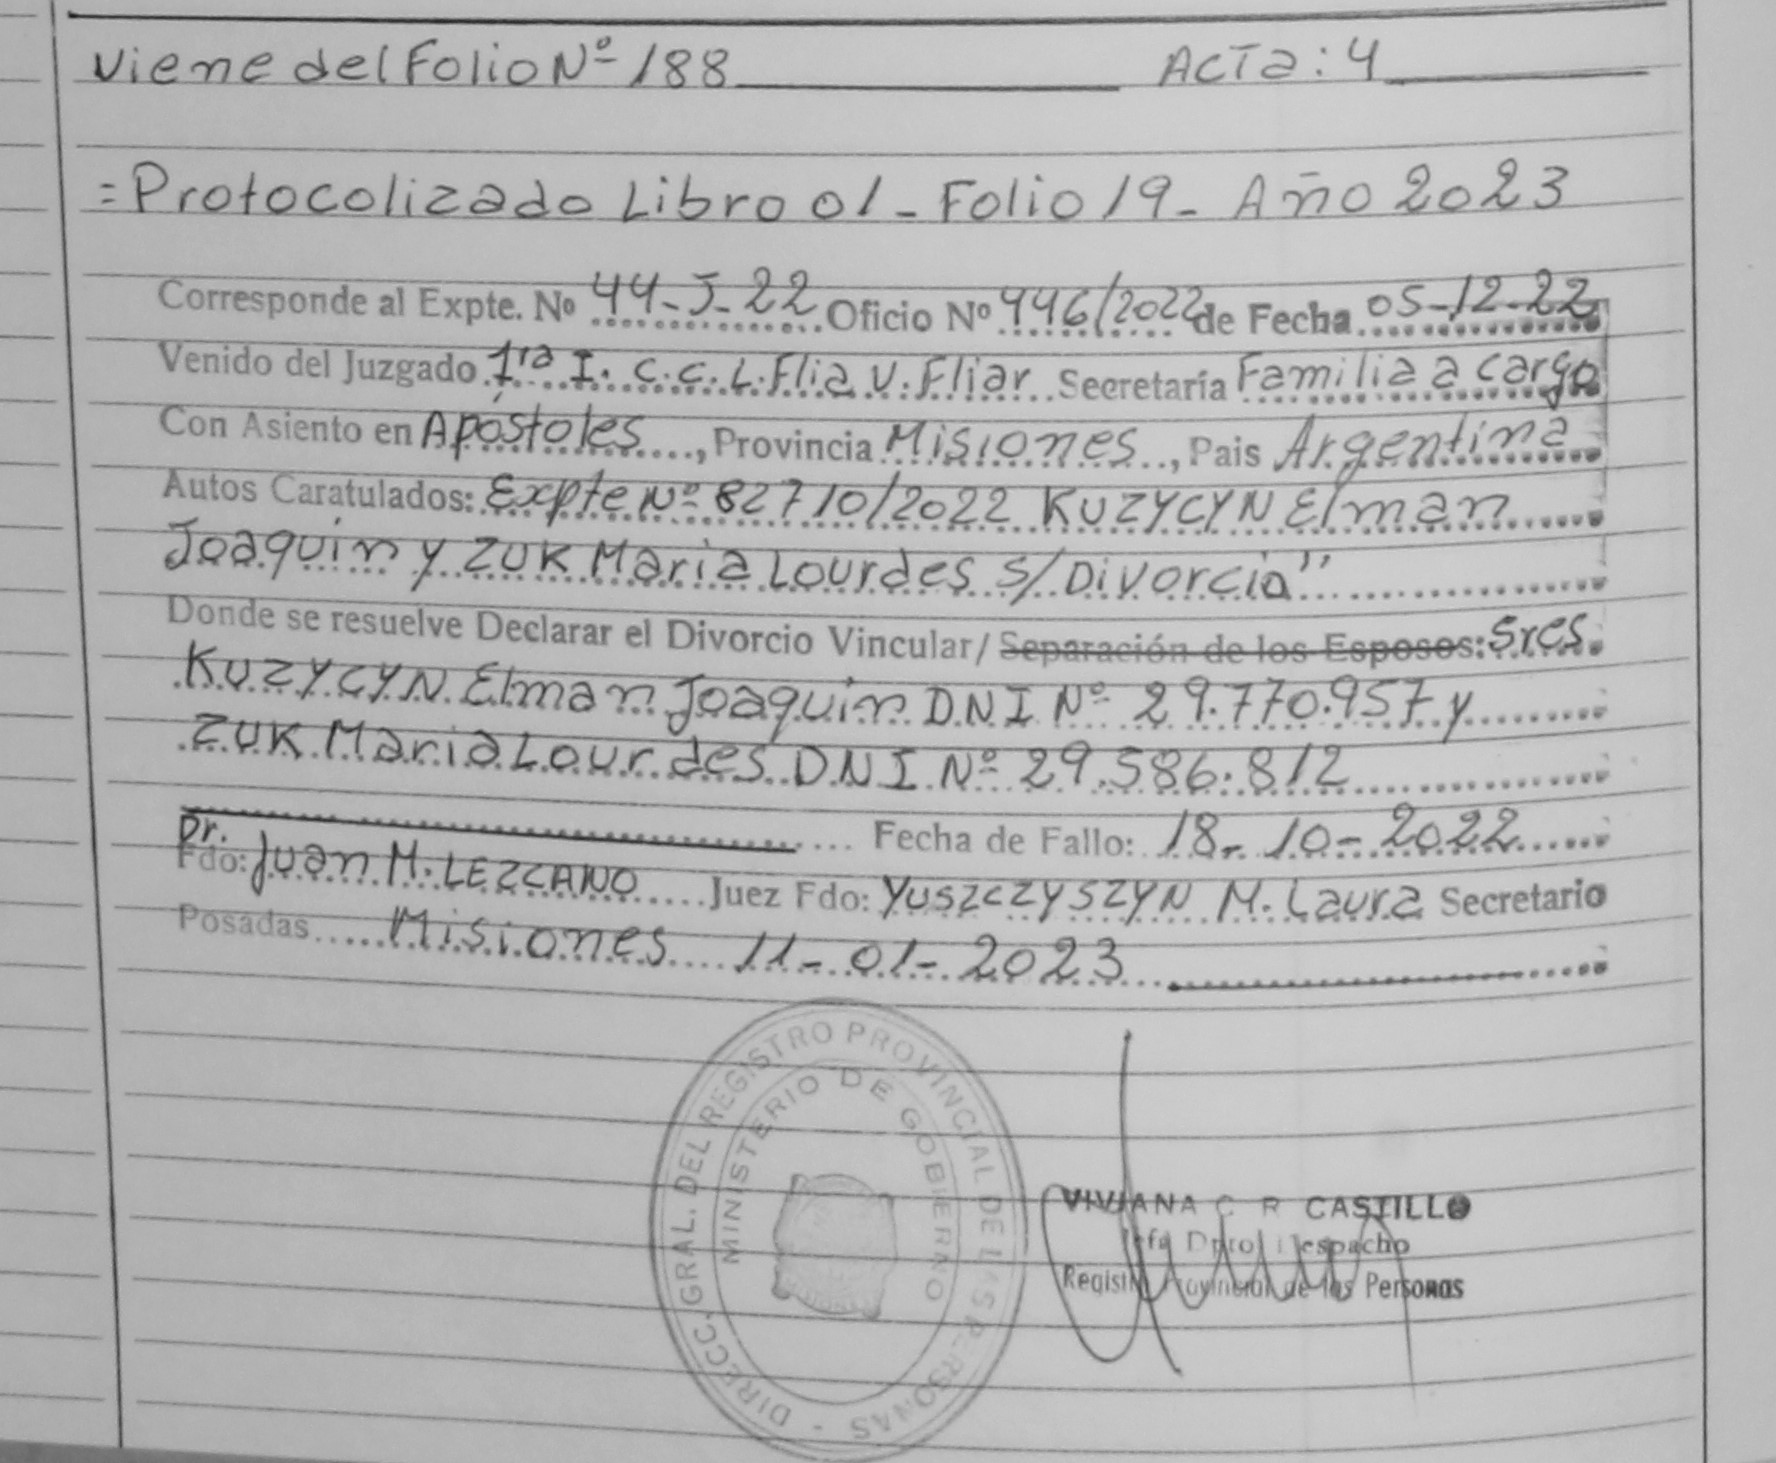 Viene del Folio Nº 188 Acta: 4
= Protocolizado Libro 01 - Folio 19 - Año 2023
Corresponde al Expte. Nº 44-J-22 Oficio Nº 446/2022 de Fecha 05-12-22
Venido del Juzgado 1ra I. C. C. L. Flia V. Fliar. Secretaría Familia a cargo
Con Asiento en Apóstoles, Provincia Misiones, Pais Argentina
Autos Caratulados: Expte Nº 82710/2022 KUZYCYN Elman
Joaquín y ZUK Maria Lourdes s/ Divorcio"
Donde se resuelve Declarar el Divorcio Vincular/ Separación de los Esposos: Sres.
KUZYCYN Elman Joaquín D.N.I Nº 29.770.957 y
ZUK Maria Lourdes D.N.I Nº 29.586.812
Fecha de Fallo: 18-10-2022
Dr.
Fdo: Juan M. LEZCANO Juez Fdo: YUSZCZYSZYN M. Laura Secretario
Posadas Misiones 11-01-2023
DIRECC. GRAL. DEL REGISTRO PROVINCIAL DE LAS PERSONAS -
MINISTERIO DE GOBIERNO
VIVIANA C. R. CASTILLO
Jefa Dpto. Despacho
Registro Provincial de las Personas